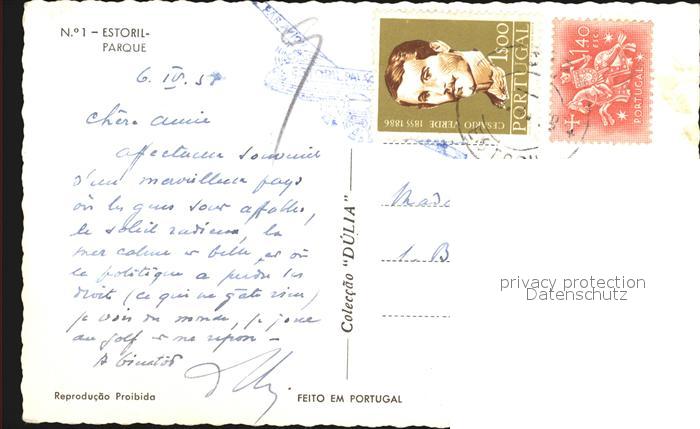 N.º 1 - ESTORIL-
PARQUE
6. IV. 58
Chère amie
affectueux souvenir
d'un merveilleux pays
où les gens sont affables,
le soleil radieux, la
mer calme et belle et où
la politique a perdu ses
droits (ce qui ne gâte rien)
je vois du monde, je joue
au golf et me repose -
A bientôt
Reprodução Proibida
FEITO EM PORTUGAL
Colecção "DÚLIA"
CESARIO VERDE 1855 1886
1$00
PORTUGAL
1$40
ESC.
PORTUGAL
Mada
1. B
privacy protection
Datenschutz